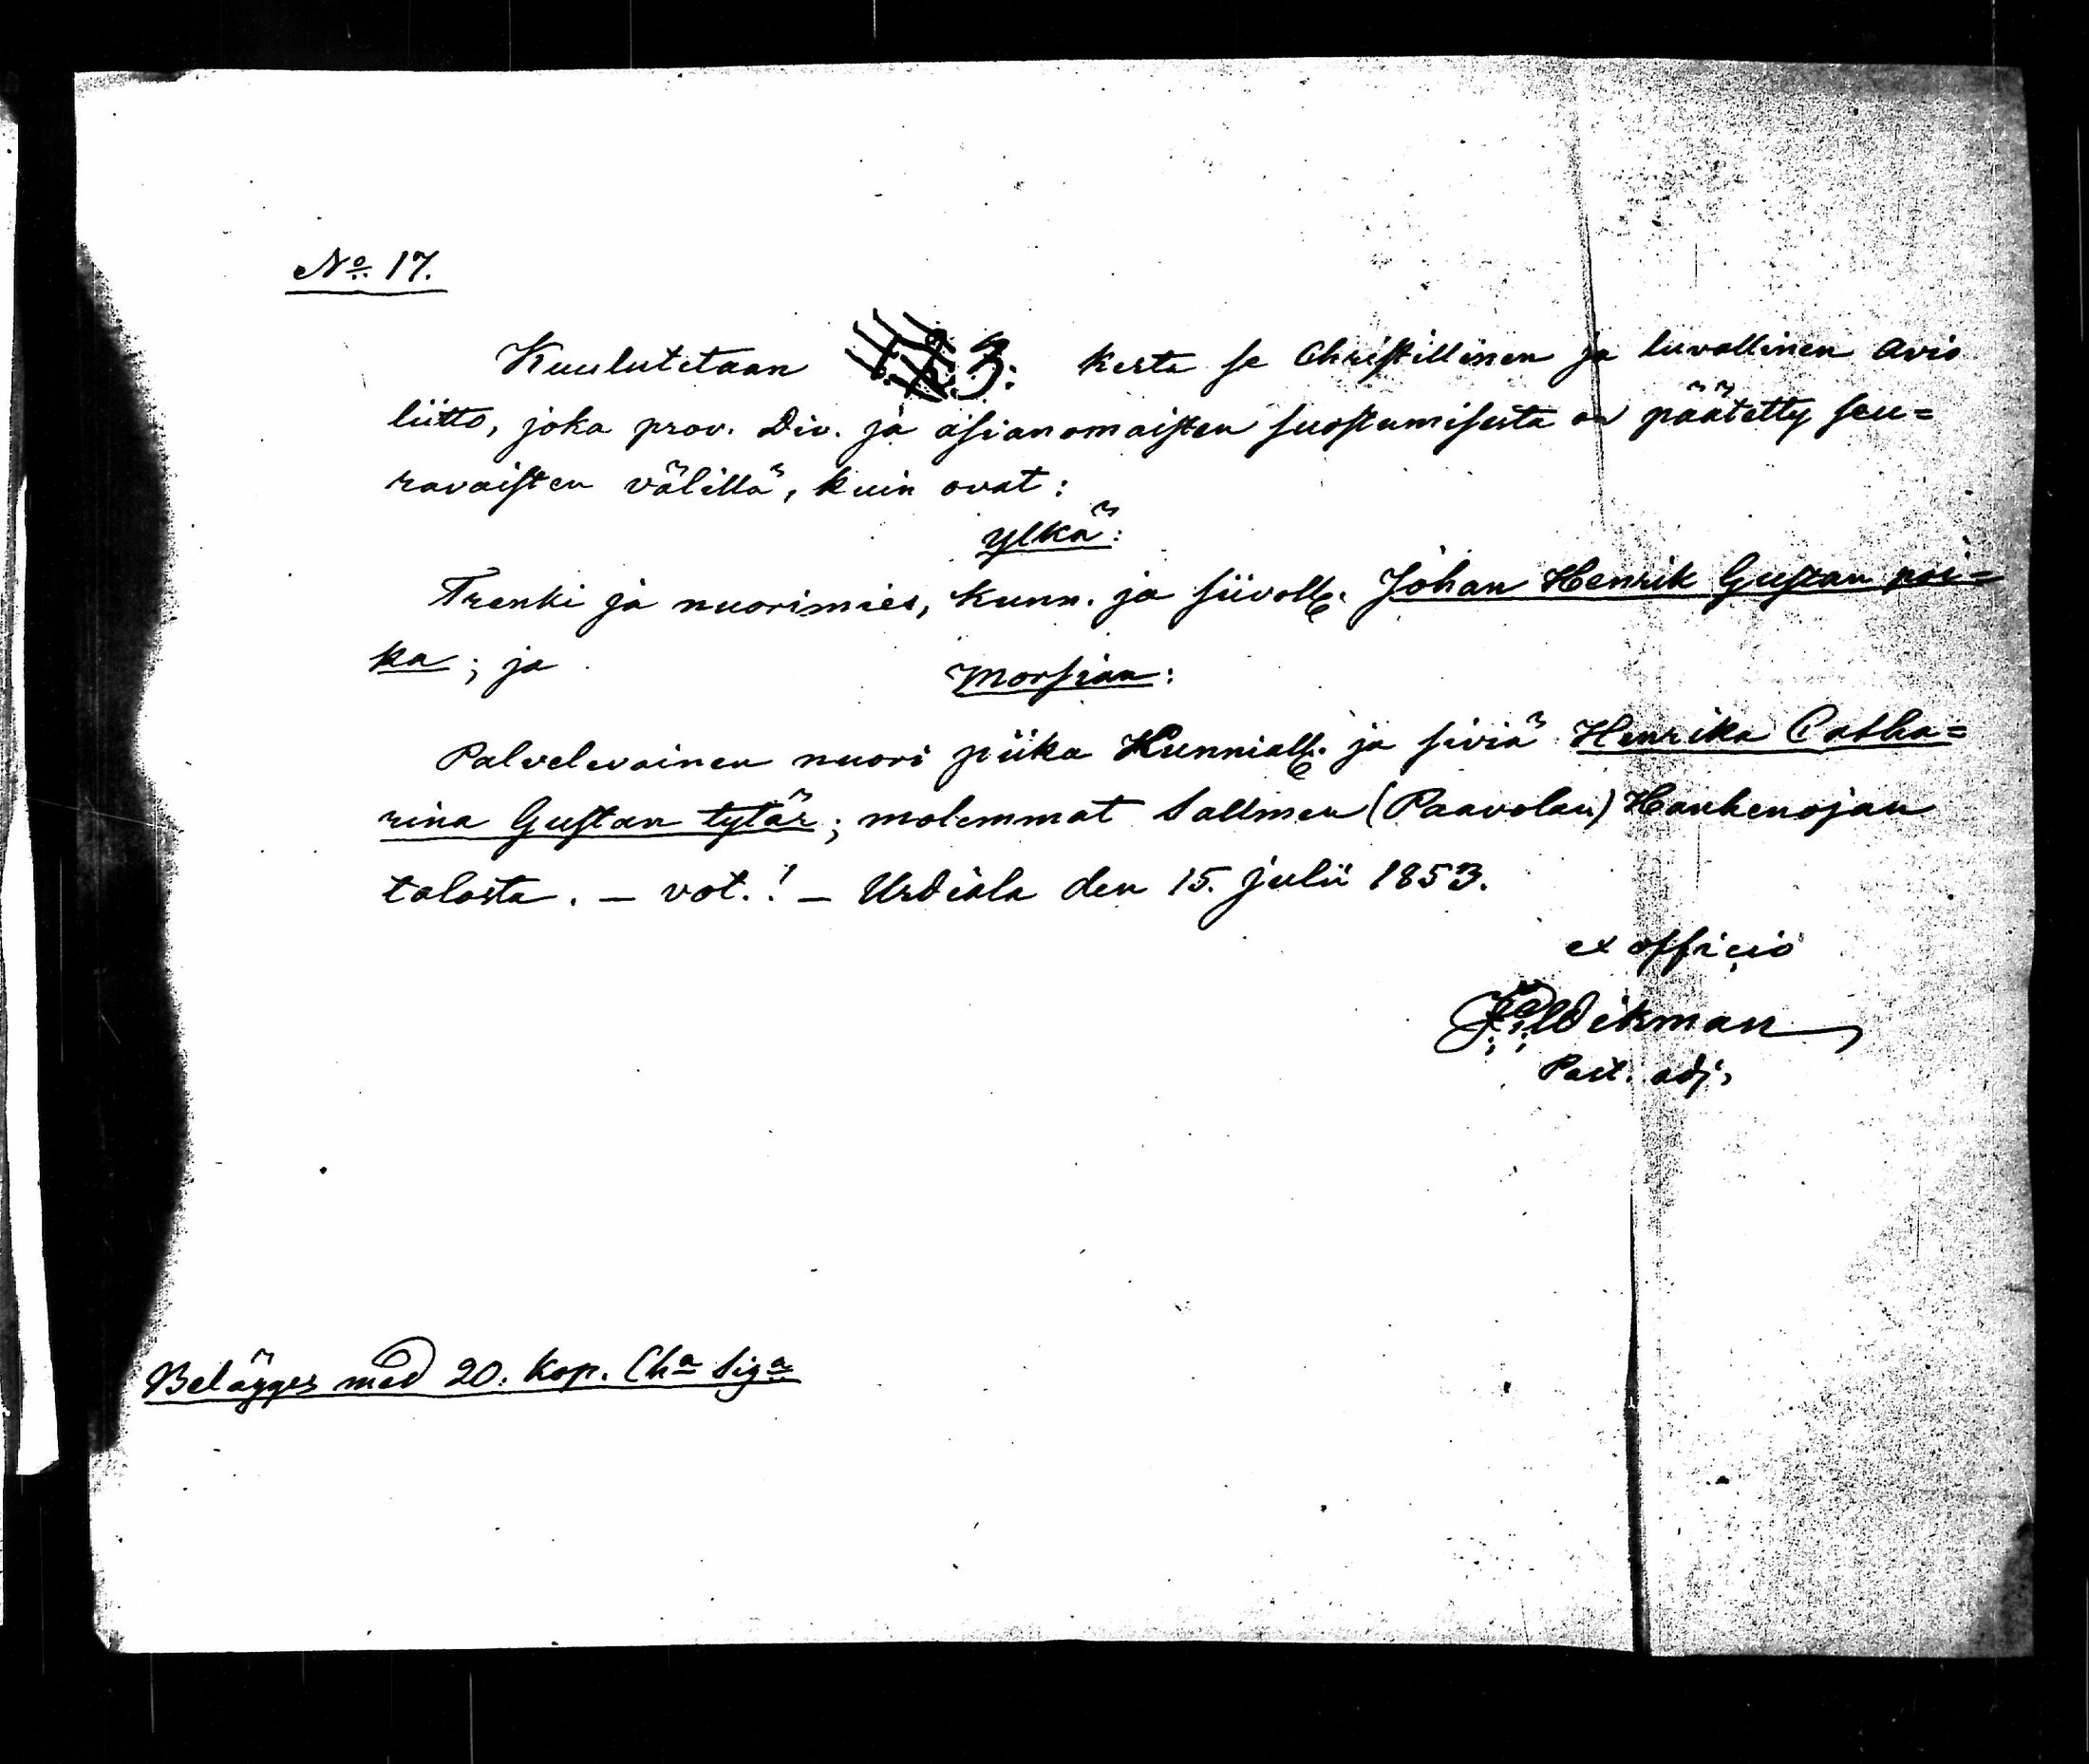 No. 17.
Kuulutetaan 3: kerta se Christillinen ja luvallinen avio
liitto, joka prov. Div. ja asianomaisten suostumisesta on päätetty seu=
ravaisten välillä, kuin ovat:
Ylkä:
Trenki ja nuorimies, kunn. ja siivoll. Johan Henrik Gustan poi=
ka; ja
Morsian:
Palvelevainen nuori piika Kunniall. ja siviä Henrika Catha=
rina Gustan tytär; molemmat Sallmen (Paavolan) Hankenojan
talosta. – vot.! – Urdiala den 15. Julii 1853.
ex officio
Wikman
Past. adj.
Belägges med 20. Kop. Cha Siga